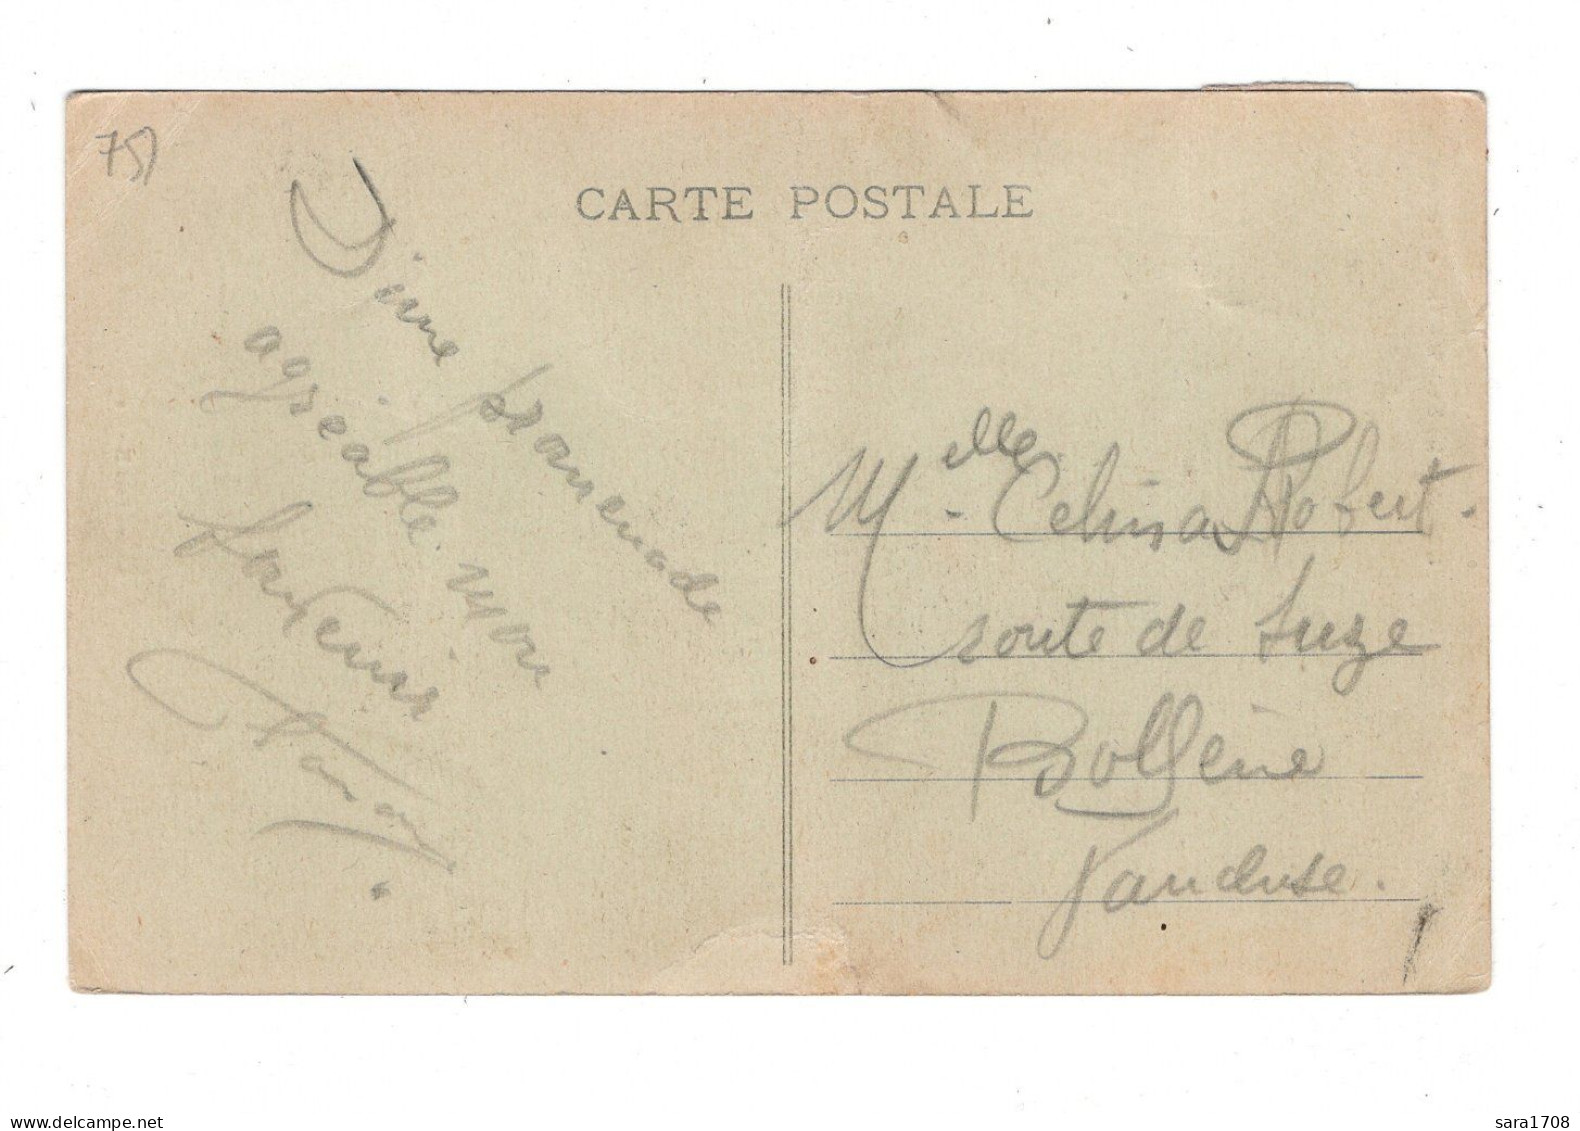 75
CARTE POSTALE
D'une promenade
agréable mon
souvenir
Melle. Celina Robert.
route de Suze
Bollène
Vaucluse.
www.delcampe.net
sara1708